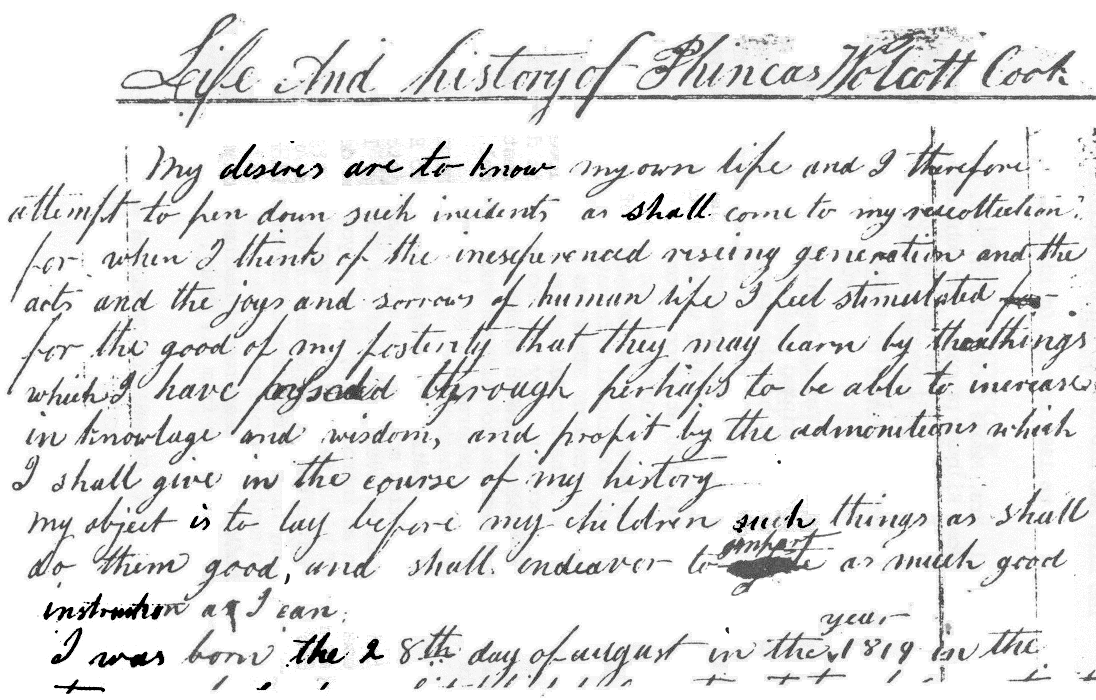 Life And history of Phineas Wolcott Cook
My desires are to know my own life and I therefore
attempt to pen down such incidents as shall come to my reecollection.
for when I think of the inexperenced riseing generation and the
acts and the joys and sorrows of human life I feel stimulated for
for the good of my posterity that they may learn by the things
which I have passed through perhaps to be able to increase
in knowlage and wisdom, and profit by the admonitions which
I shall give in the course of my history
my object is to lay before my children such things as shall
do them good, and shall endeaver to impart as much good
instruction as I can.
I was born the 28th day of august in the year 1819 in the